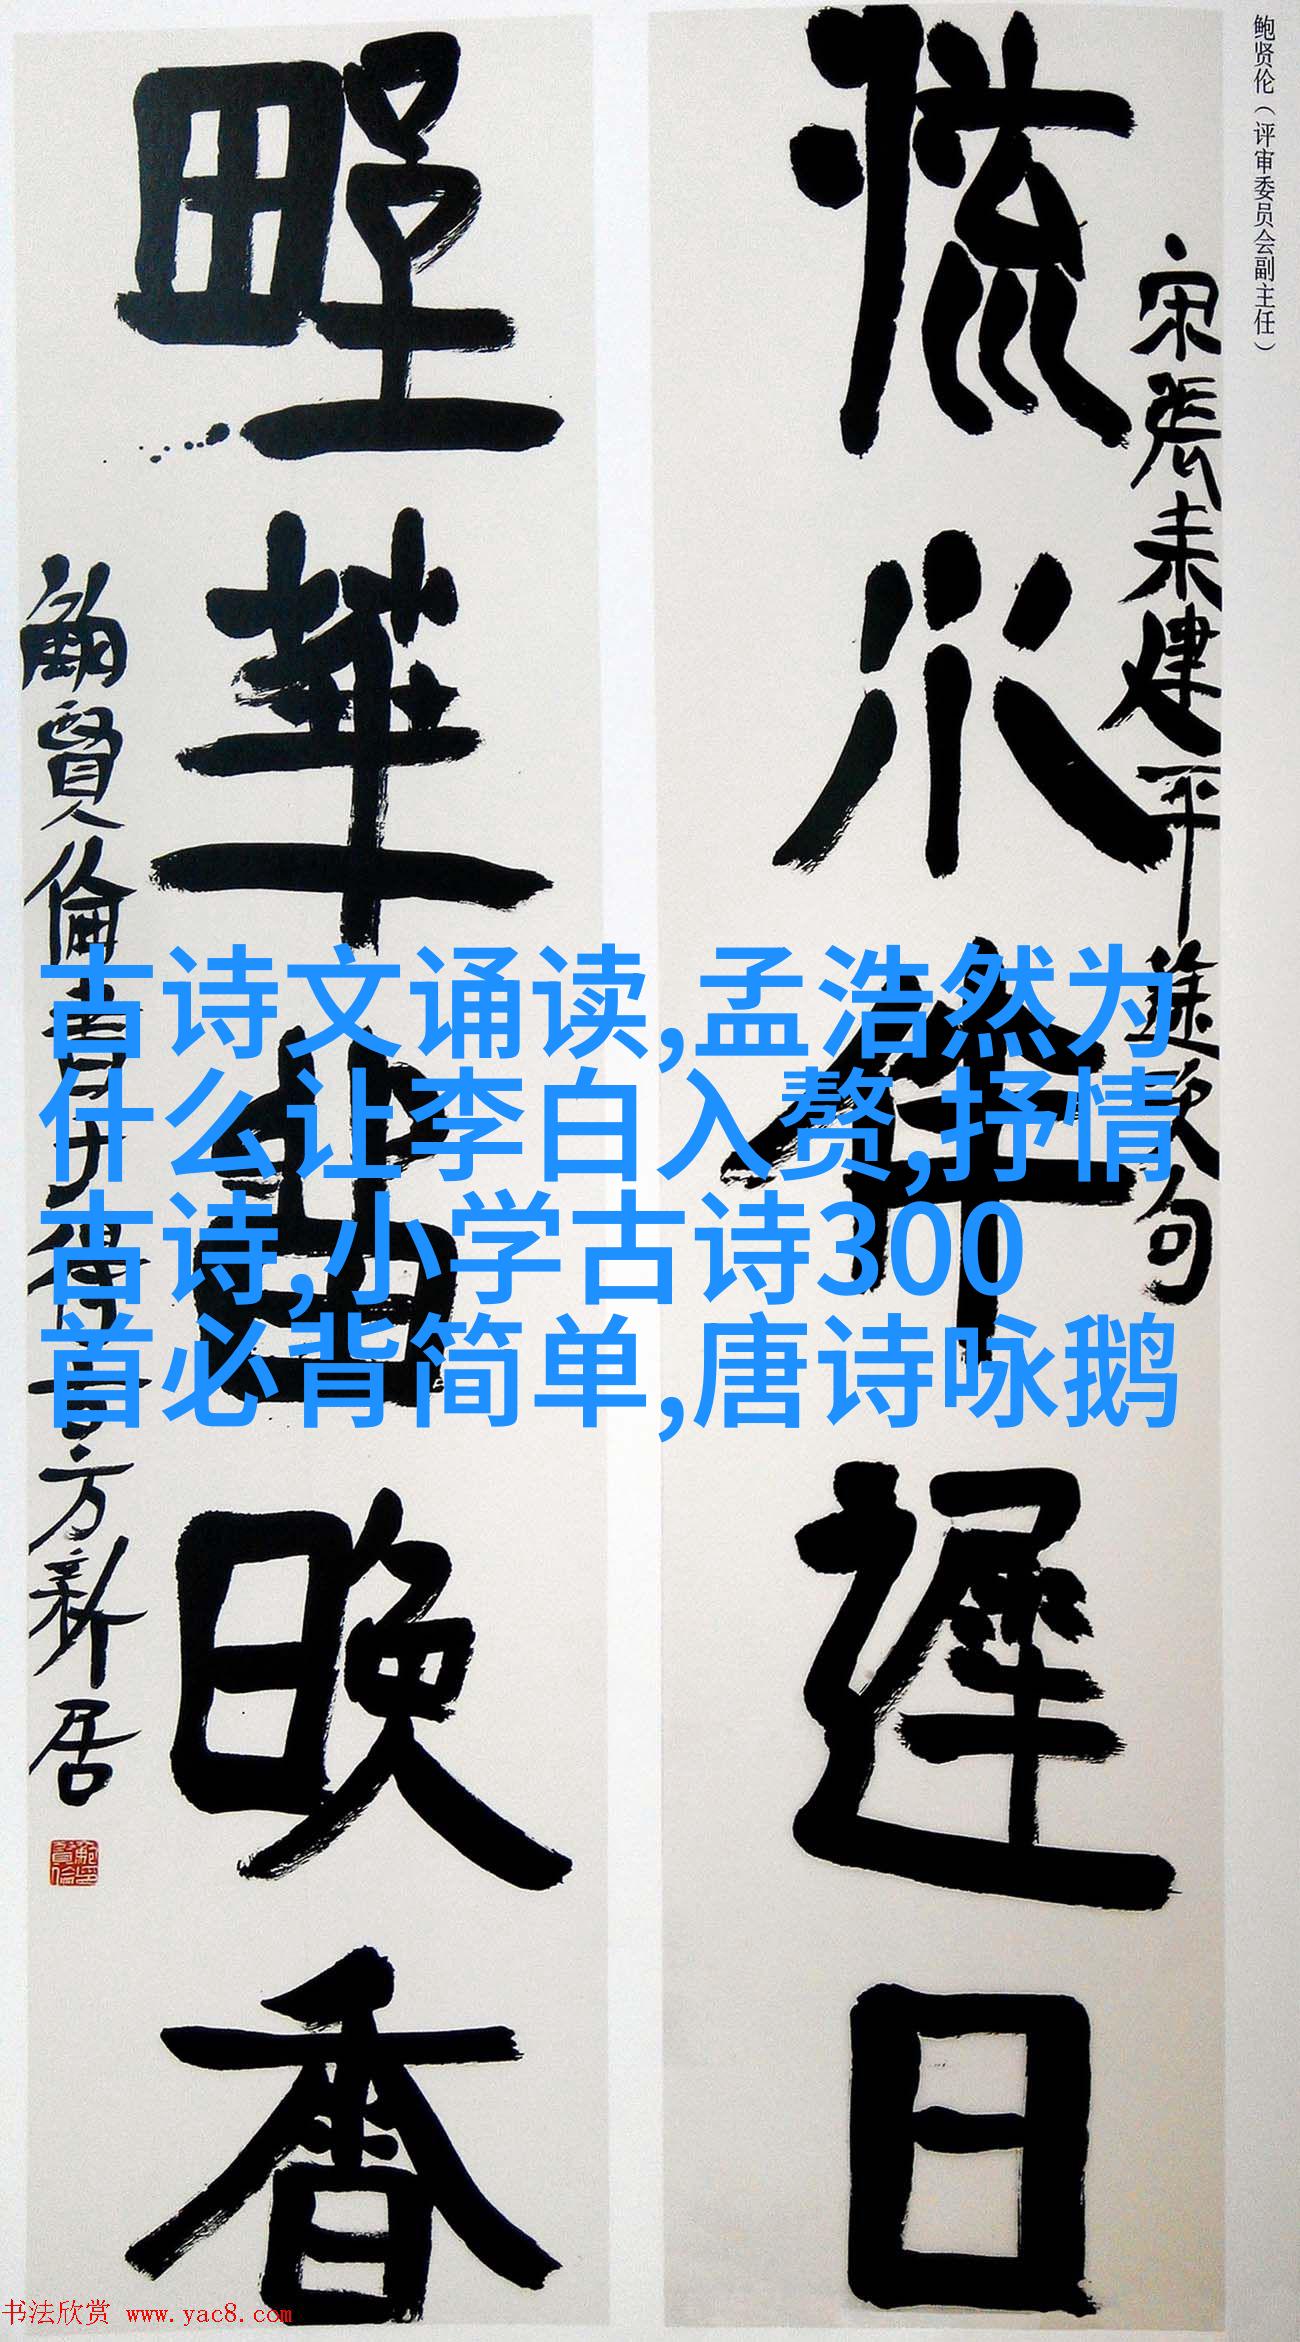 鲍贤伦（评审委员会副主任）
宋張耒建平途次句
流水伴遲日
野華曲晚香
鮑賢倫書于得一方新居
古诗文诵读,孟浩然为
什么让李白入赘,抒情
古诗,小学古诗300
首必背简单,唐诗咏鹅
书法欣赏 www.yac8.com